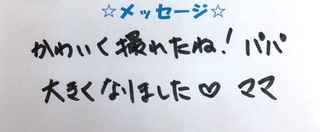 ☆メッセージ☆
かわいく撮れたね!パパ
大きくなりました♡ ママ